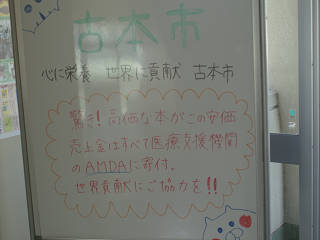 古本市
心に栄養 世界に貢献 古本市
驚き!高価な本がこの安価
売上金はすべて医療支援機関
のAMDAに寄付。
世界貢献にご協力を!!